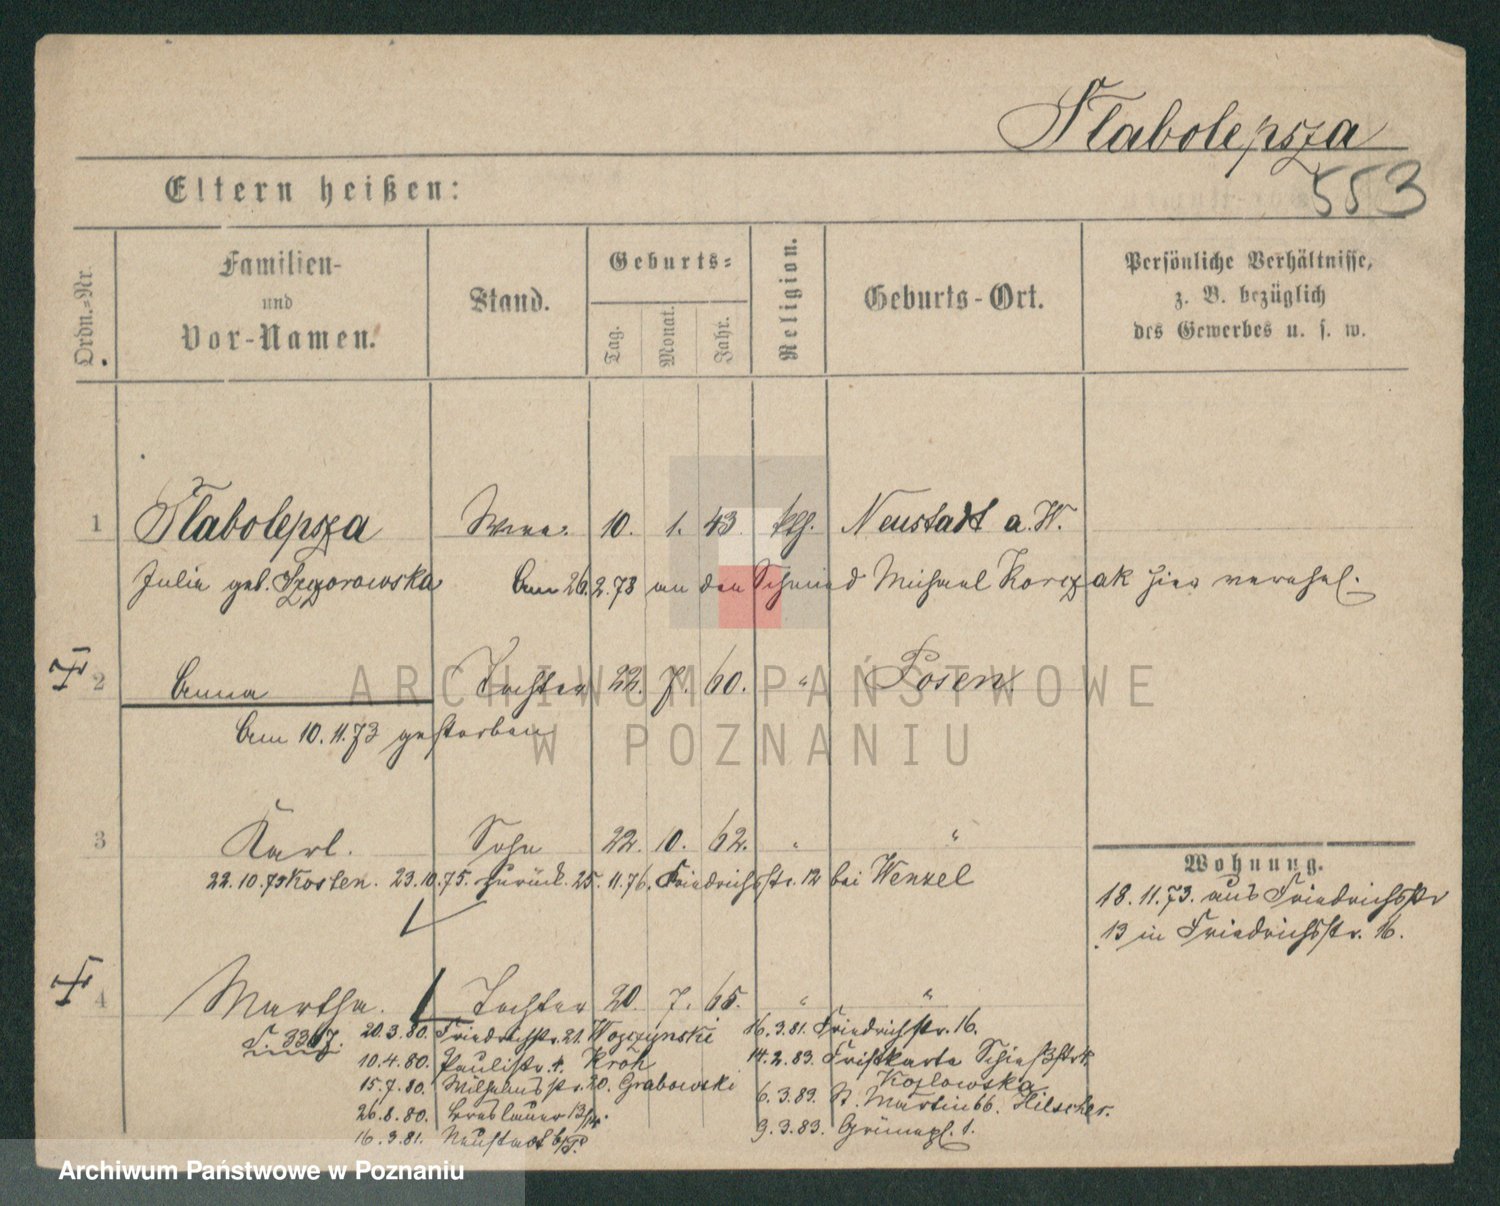 Slabolepsza
553
Eltern heißen:
Ordn.-Nr.
Familien-
und
Vor-Namen.
Stand.
Geburts-
Tag.
Monat.
Jahr.
Religion.
Geburts-Ort.
Persönliche Verhältnisse,
z. B. bezüglich
des Gewerbes u. s. w.
1 Slabolepsza Wwe. 10. 1. 43. kth. Neustadt a. W.
Julie geb. Grzegorowska Am 26.2.73 an den Schmied Michael Korczak hier verehel.
2 Anna Tochter 22. 7. 60. " Posen.
Am 10.11.73 gestorben
3 Karl. Sohn 22. 10. 62. " "
22.10.73 Kosten. 23.10.75. zurück. 25.11.76. Friedrichsstr. 12 bei Wenzel
Wohnung.
18.11.73. aus Friedrichsstr
13 in Friedrichsstr. 16.
4 Martha. Tochter 20. 7. 65. " "
3367. 20.3.80. Friedrichstr. 21. Woyzynski
10.4.80. Paulistr. 4. Kroh
15.7.80. Wilhelmsstr. 20. Grabowski
26.8.80. Breslauer 13/14.
16.3.81. Neustadt b/P.
16.3.81. Friedrichstr. 16.
14.2.83. Fristkarte Schießstr.
Kozlowska
6.3.83. St. Martin 66. Hilscher.
9.3.83. Grünepl. 1.
ARCHIWUM PAŃSTWOWE
W POZNANIU
Archiwum Państwowe w Poznaniu